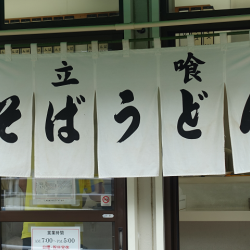 立喰
そばうどん
営業時間
AM 7:00~PM 5:00